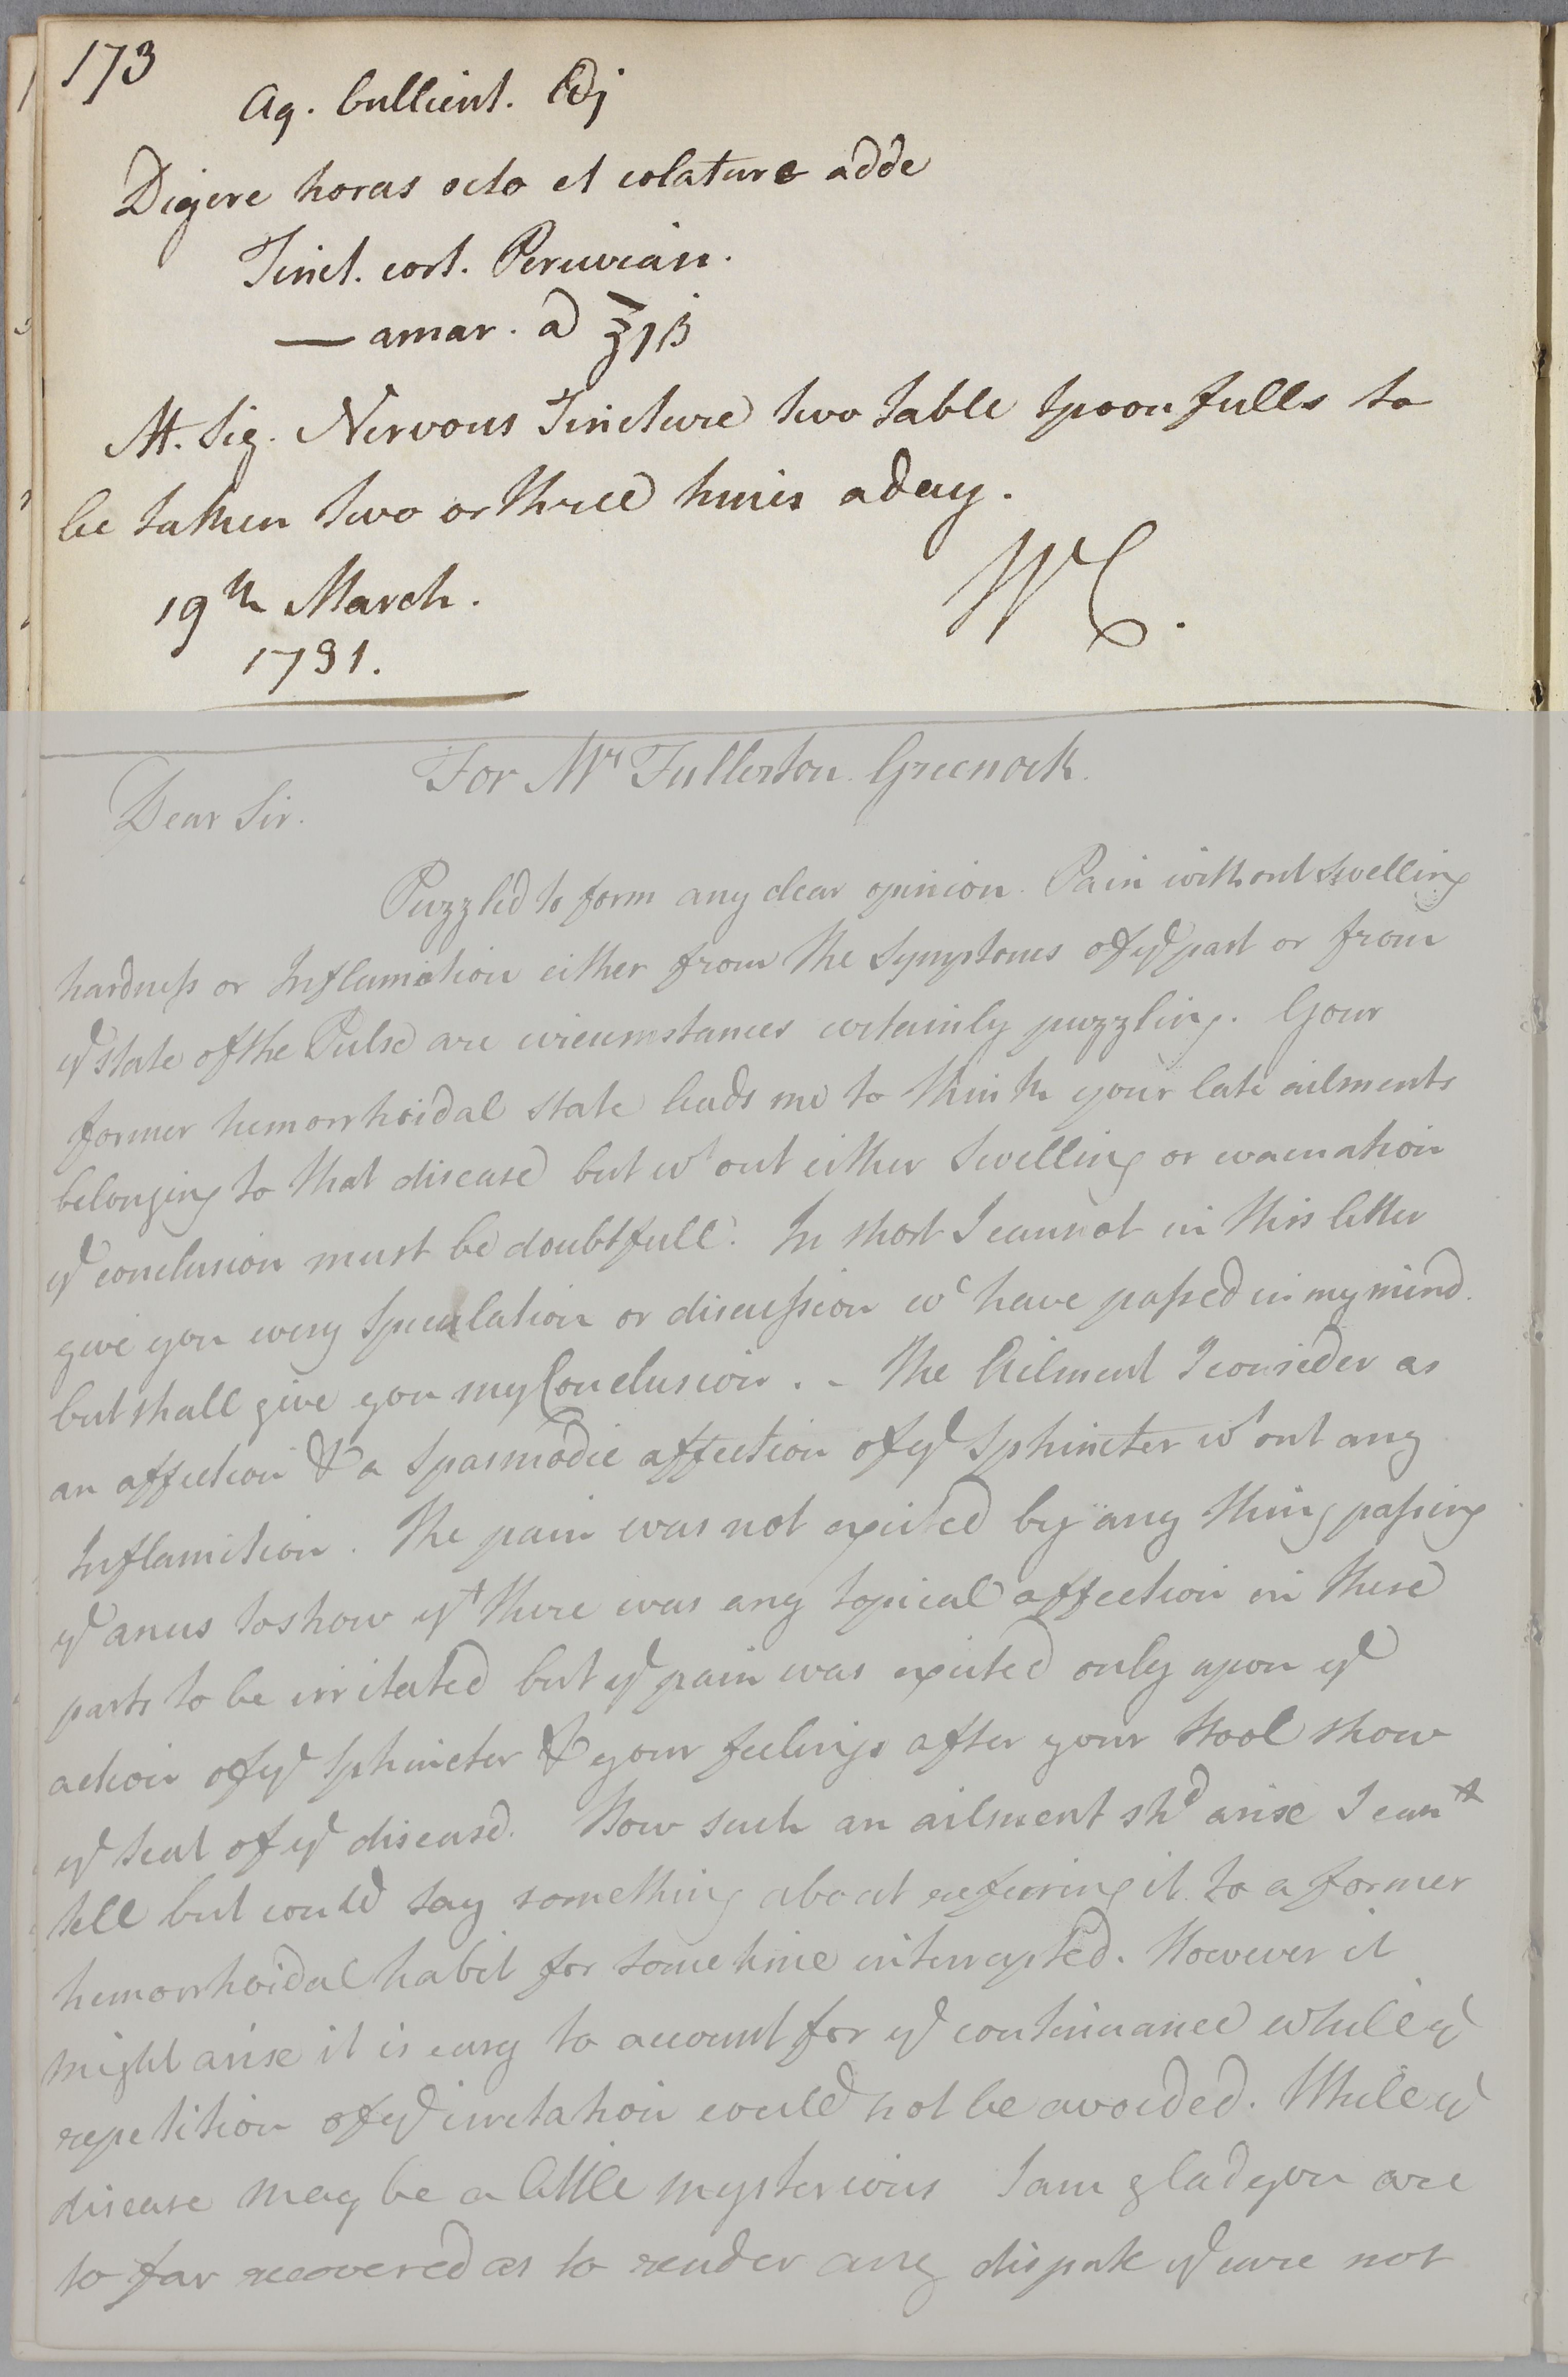 173
Aq. bullient. ℔j
Digere horas octo et colature adde
Tinct. cort. Peruvian.
— amar. a ʒ1ß
M. Sig. Nervous Tincture two table spoonfulls to
be taken two or three times a day.
19th March.
WC.
1781.
For Mr Fullerton Greenock.
Dear Sir.
Puzzled to form any clear opinion. Pain without swelling
hardness or Inflamation either from the Symptoms of ye part or from
ye state of the Pulse are circumstances certainly puzzling. Your
former hemorrhoidal state leads me to think your late ailments
belonging to that disease but wt out either Swelling or evacuation
ye conclusion must be doubtfull. In short I cannot in this letter
give you every Speculation or discussion wc have passed in my mind.
but shall give you my Conclusion. - The Ailment I consider as
an affection & a Spasmodic affection of ye Sphincter wt out any
Inflamation. The pain was not excited by any thing passing
ye anus to show yt there was any topical affection in these
parts to be irritated but ye pain was excited only upon ye
action of ye Sphincter & your feelings after your stool show
ye seat of ye disease. How such an ailment shd arise I cant
tell but could say something about refering it to a former
hemorrhoidal habit for some time interrupted. However it
might arise it is easy to account for ye continuance while ye
repetition of ye irritation could not be avoided. While ye
disease may be a little mysterious I am glad you are
so far recovered as to render any dispute ye cure not